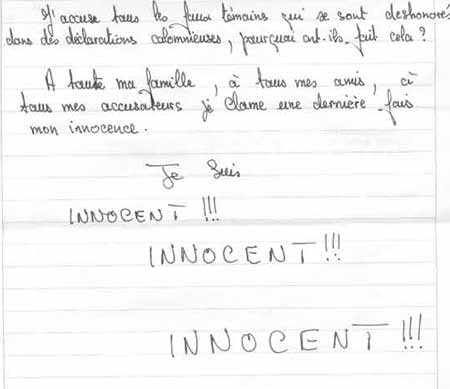 J'accuse tous les faux témoins qui se sont deshonorés
dans des déclarations calomnieuses, pourquoi ont-ils fait cela ?
A toute ma famille, à tous mes amis, à
tous mes accusateurs je clame une dernière fois
mon innocence.
Je suis
INNOCENT !!!
INNOCENT !!!
INNOCENT !!!